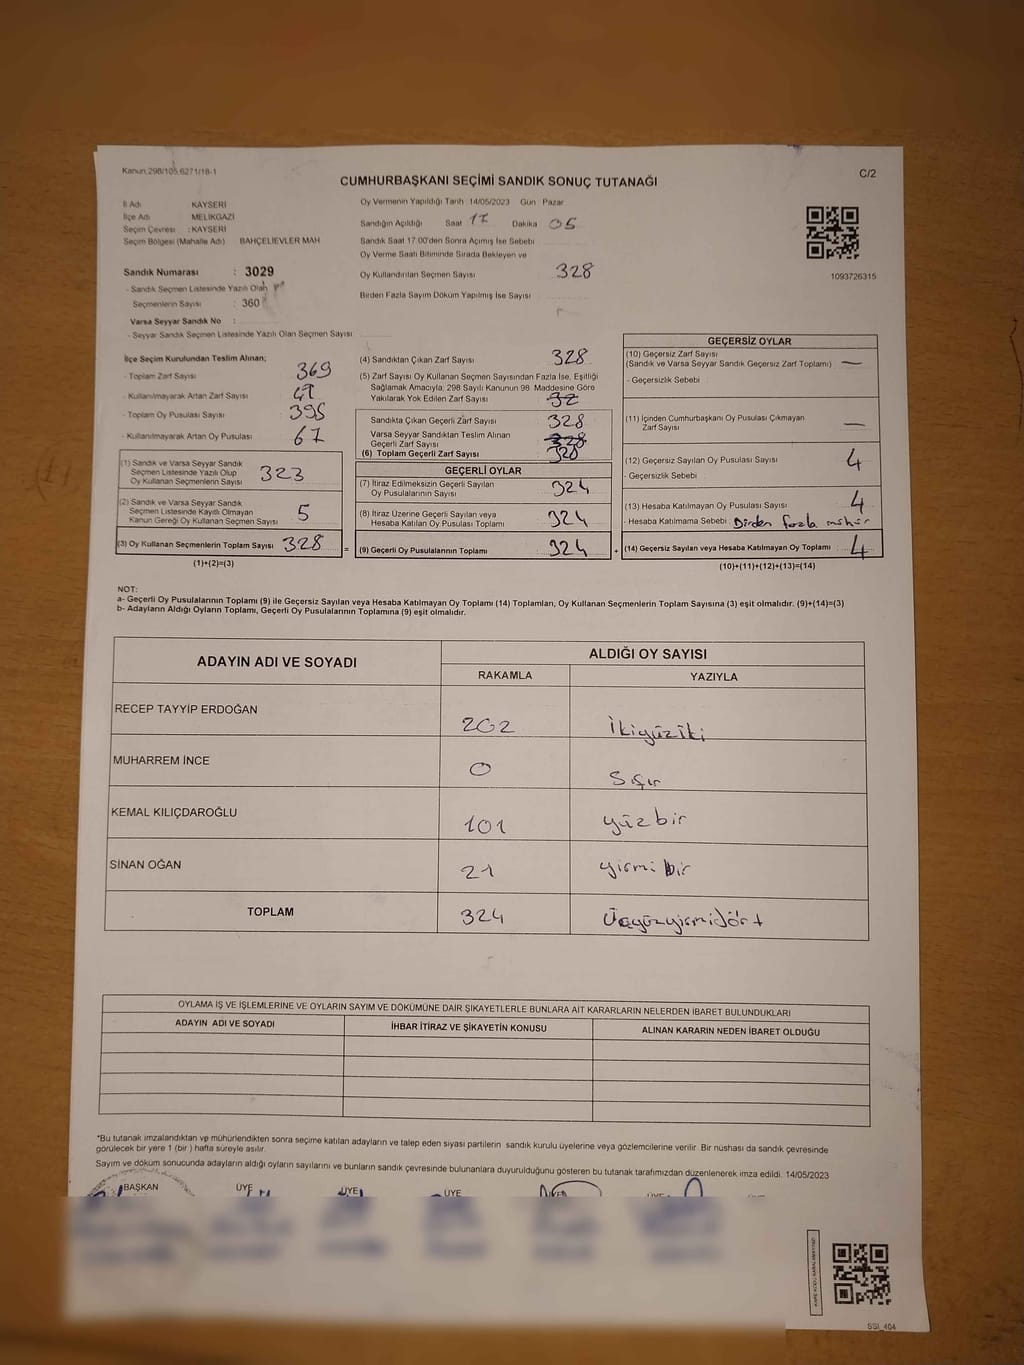 Kanun.298/105,6271/18-1
C/2
CUMHURBAŞKANI SEÇİMİ SANDIK SONUÇ TUTANAĞI
İl Adı : KAYSERİ
İlçe Adı : MELİKGAZİ
Seçim Çevresi : KAYSERİ
Seçim Bölgesi (Mahalle Adı) BAHÇELİEVLER MAH
Sandık Numarası : 3029
- Sandık Seçmen Listesinde Yazılı Olan
Seçmenlerin Sayısı : 360
Varsa Seyyar Sandık No :
- Seyyar Sandık Seçmen Listesinde Yazılı Olan Seçmen Sayısı
Oy Vermenin Yapıldığı Tarih 14/05/2023 Gün Pazar
Sandığın Açıldığı Saat 17 Dakika 05
Sandık Saat 17.00'den Sonra Açımış İse Sebebi
Oy Verme Saati Bitiminde Sırada Bekleyen ve
Oy Kullandırılan Seçmen Sayısı 328
Birden Fazla Sayım Döküm Yapılmış İse Sayısı
1093726315
İlçe Seçim Kurulundan Teslim Alınan;
- Toplam Zarf Sayısı 369
- Kullanılmayarak Artan Zarf Sayısı 41
- Toplam Oy Pusulası Sayısı 395
- Kullanılmayarak Artan Oy Pusulası 67
(1) Sandık ve Varsa Seyyar Sandık
Seçmen Listesinde Yazılı Olup
Oy Kullanan Seçmenlerin Sayısı 323
(2) Sandık ve Varsa Seyyar Sandık
Seçmen Listesinde Kayıtlı Olmayan
Kanun Gereği Oy Kullanan Seçmen Sayısı 5
(3) Oy Kullanan Seçmenlerin Toplam Sayısı 328 =
(1)+(2)=(3)
(4) Sandıktan Çıkan Zarf Sayısı 328
(5) Zarf Sayısı Oy Kullanan Seçmen Sayısından Fazla İse, Eşitliği
Sağlamak Amacıyla; 298 Sayılı Kanunun 98. Maddesine Göre
Yakılarak Yok Edilen Zarf Sayısı
Sandıkta Çıkan Geçerli Zarf Sayısı 328
Varsa Seyyar Sandıktan Teslim Alınan
Geçerli Zarf Sayısı
(6) Toplam Geçerli Zarf Sayısı 328
GEÇERLİ OYLAR
(7) İtiraz Edilmeksizin Geçerli Sayılan
Oy Pusulalarının Sayısı 324
(8) İtiraz Üzerine Geçerli Sayılan veya
Hesaba Katılan Oy Pusulası Toplamı 324
(9) Geçerli Oy Pusulalarının Toplamı 324 +
GEÇERSİZ OYLAR
(10) Geçersiz Zarf Sayısı
(Sandık ve Varsa Seyyar Sandık Geçersiz Zarf Toplamı) —
- Geçersizlik Sebebi
(11) İçinden Cumhurbaşkanı Oy Pusulası Çıkmayan
Zarf Sayısı —
(12) Geçersiz Sayılan Oy Pusulası Sayısı 4
- Geçersizlik Sebebi
(13) Hesaba Katılmayan Oy Pusulası Sayısı 4
- Hesaba Katılmama Sebebi Birden fazla mühür
(14) Geçersiz Sayılan veya Hesaba Katılmayan Oy Toplamı 4
(10)+(11)+(12)+(13)=(14)
NOT:
a- Geçerli Oy Pusulalarının Toplamı (9) ile Geçersiz Sayılan veya Hesaba Katılmayan Oy Toplamı (14) Toplamları, Oy Kullanan Seçmenlerin Toplam Sayısına (3) eşit olmalıdır. (9)+(14)=(3)
b- Adayların Aldığı Oyların Toplamı, Geçerli Oy Pusulalarının Toplamına (9) eşit olmalıdır.
ADAYIN ADI VE SOYADI
ALDIĞI OY SAYISI
RAKAMLA YAZIYLA
RECEP TAYYİP ERDOĞAN 202 İkiyüziki
MUHARREM İNCE 0 Sıfır
KEMAL KILIÇDAROĞLU 101 yüzbir
SİNAN OĞAN 21 yirmi bir
TOPLAM 324 Üçyüzyirmidört
OYLAMA İŞ VE İŞLEMLERİNE VE OYLARIN SAYIM VE DÖKÜMÜNE DAİR ŞİKAYETLERLE BUNLARA AİT KARARLARIN NELERDEN İBARET BULUNDUKLARI
ADAYIN ADI VE SOYADI İHBAR İTİRAZ VE ŞİKAYETİN KONUSU ALINAN KARARIN NEDEN İBARET OLDUĞU
*Bu tutanak imzalandıktan ve mühürlendikten sonra seçime katılan adayların ve talep eden siyasi partilerin sandık kurulu üyelerine veya gözlemcilerine verilir. Bir nüshası da sandık çevresinde
görülecek bir yere 1 (bir) hafta süreyle asılır.
Sayım ve döküm sonucunda adayların aldığı oyların sayılarını ve bunların sandık çevresinde bulunanlara duyurulduğunu gösteren bu tutanak tarafımızdan düzenlenerek imza edildi. 14/05/2023
BAŞKAN ÜYE ÜYE ÜYE ÜYE ÜYE ÜYE
SSI_404